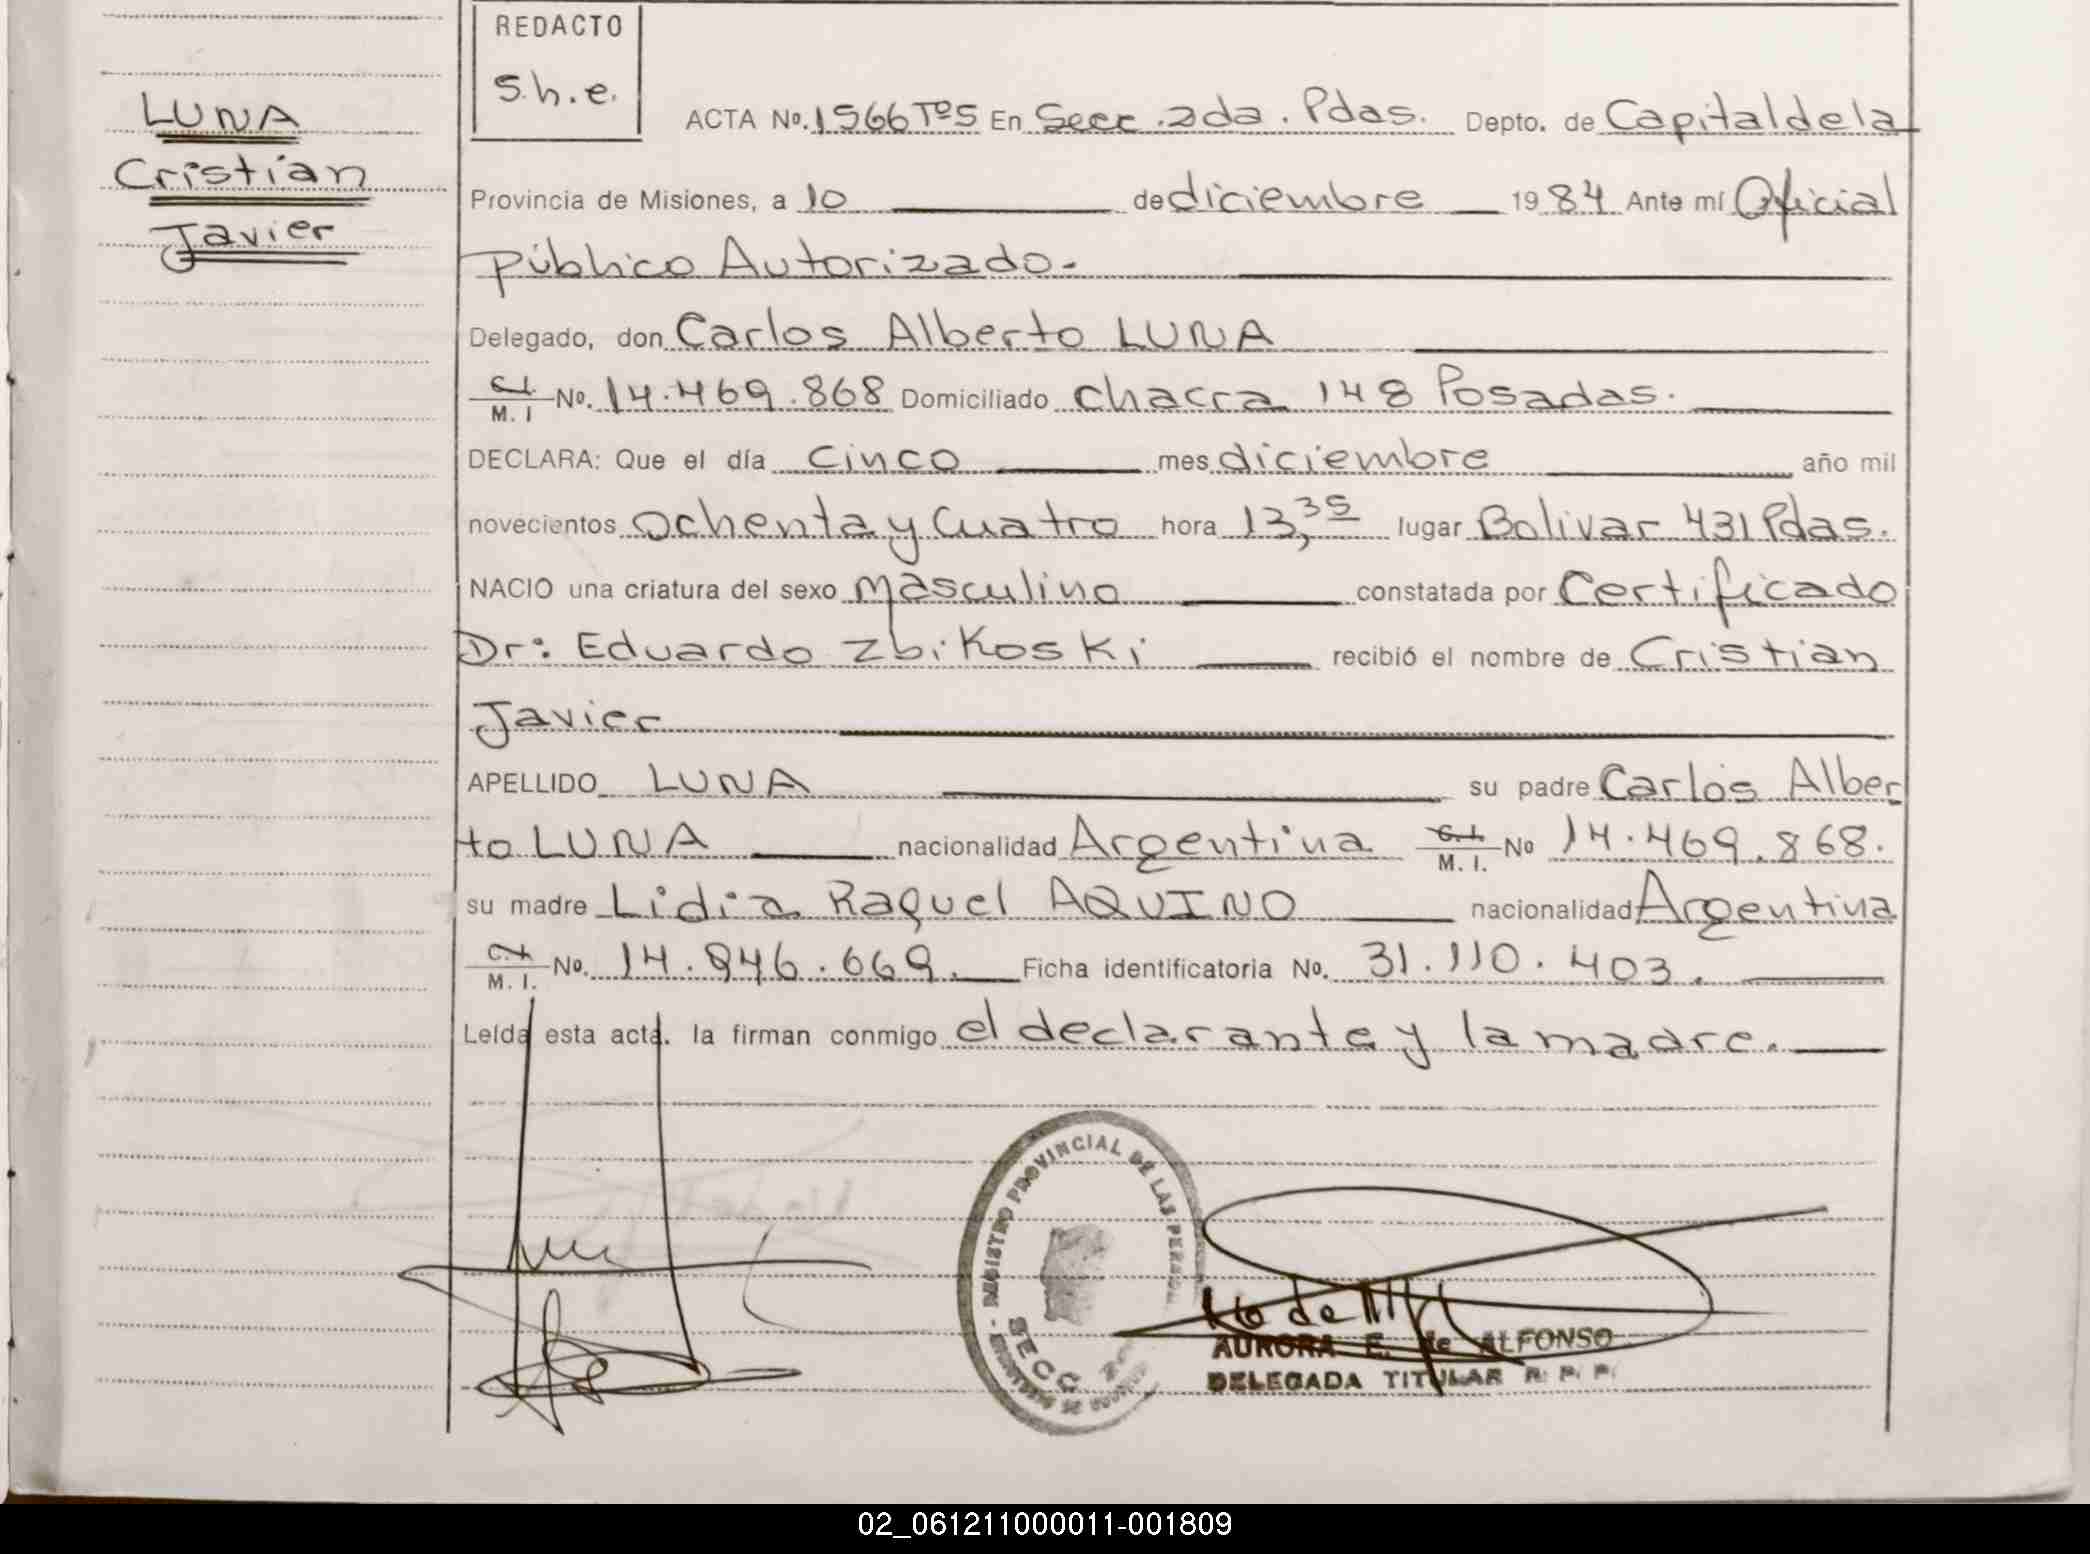 REDACTO
S.h.e.
LUNA
Cristian
Javier
ACTA Nº. 1566 Tº5 En Secc. 2da. Pdas. Depto. de Capital de la
Provincia de Misiones, a 10 de diciembre 1984 Ante mí Oficial
Público Autorizado.
Delegado, don Carlos Alberto LUNA
C.I. M. I Nº. 14.469.868 Domiciliado chacra 148 Posadas.
DECLARA: Que el día cinco mes diciembre año mil
novecientos ochenta y cuatro hora 13,35 lugar Bolivar 431 Pdas.
NACIO una criatura del sexo masculino constatada por Certificado
Dr: Eduardo Zbikoski recibió el nombre de Cristian
Javier
APELLIDO LUNA su padre Carlos Alber
to LUNA nacionalidad Argentina C.I. M. I. Nº 14.469.868.
su madre Lidia Raquel AQUINO nacionalidad Argentina
C.I. M. I. Nº. 14.946.669. Ficha identificatoria Nº. 31.110.403.
Leída esta acta. la firman conmigo el declarante y la madre.
REGISTRO PROVINCIAL DE LAS
SECC
AURORA E. de ALFONSO
DELEGADA TITULAR R. P. P.
02_061211000011-001809